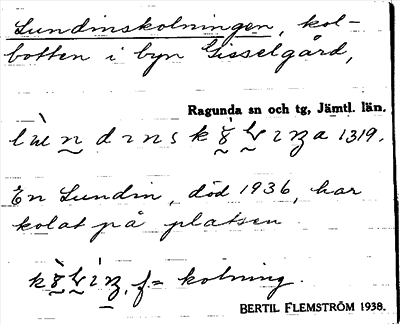 Lundinskolningen, kol-
botten i byn Gisselgård,
Ragunda sn och tg, Jämtl. län.
1319.
En Lundin, död 1936, har
kolat på platsen.
f = kolning.
BERTIL FLEMSTRÖM 1938.